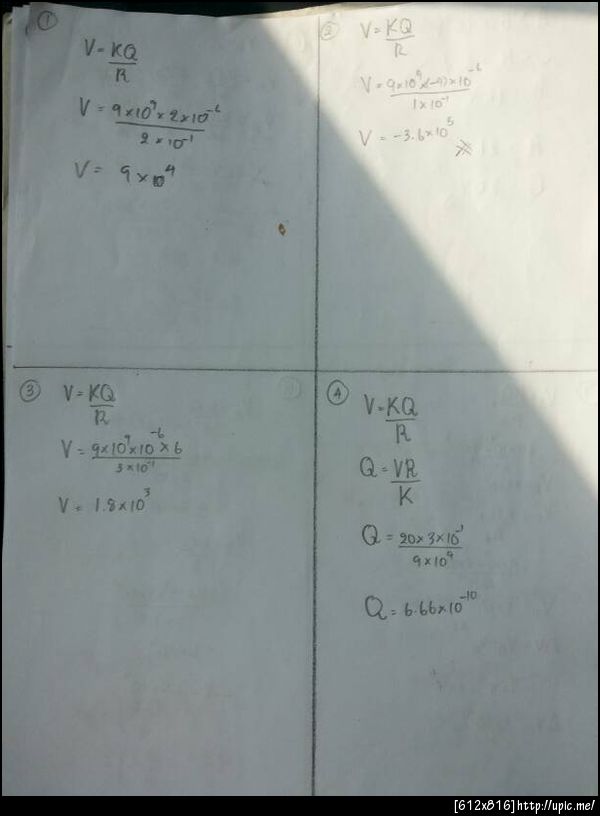 ①
V = KQ
R
V = 9×10⁹×2×10⁻⁶
2×10⁻¹
V = 9×10⁴
②
V = KQ
R
V = 9×10⁹×(-4)×10⁻⁶
1×10⁻¹
V = -3.6×10⁵
③
V = KQ
R
V = 9×10⁹×10⁻⁶×6
3×10⁻¹
V = 1.8×10³
④
V = KQ
R
Q = VR
K
Q = 20×3×10⁻¹
9×10⁹
Q = 6.66×10⁻¹⁰
[612x816]http://upic.me/